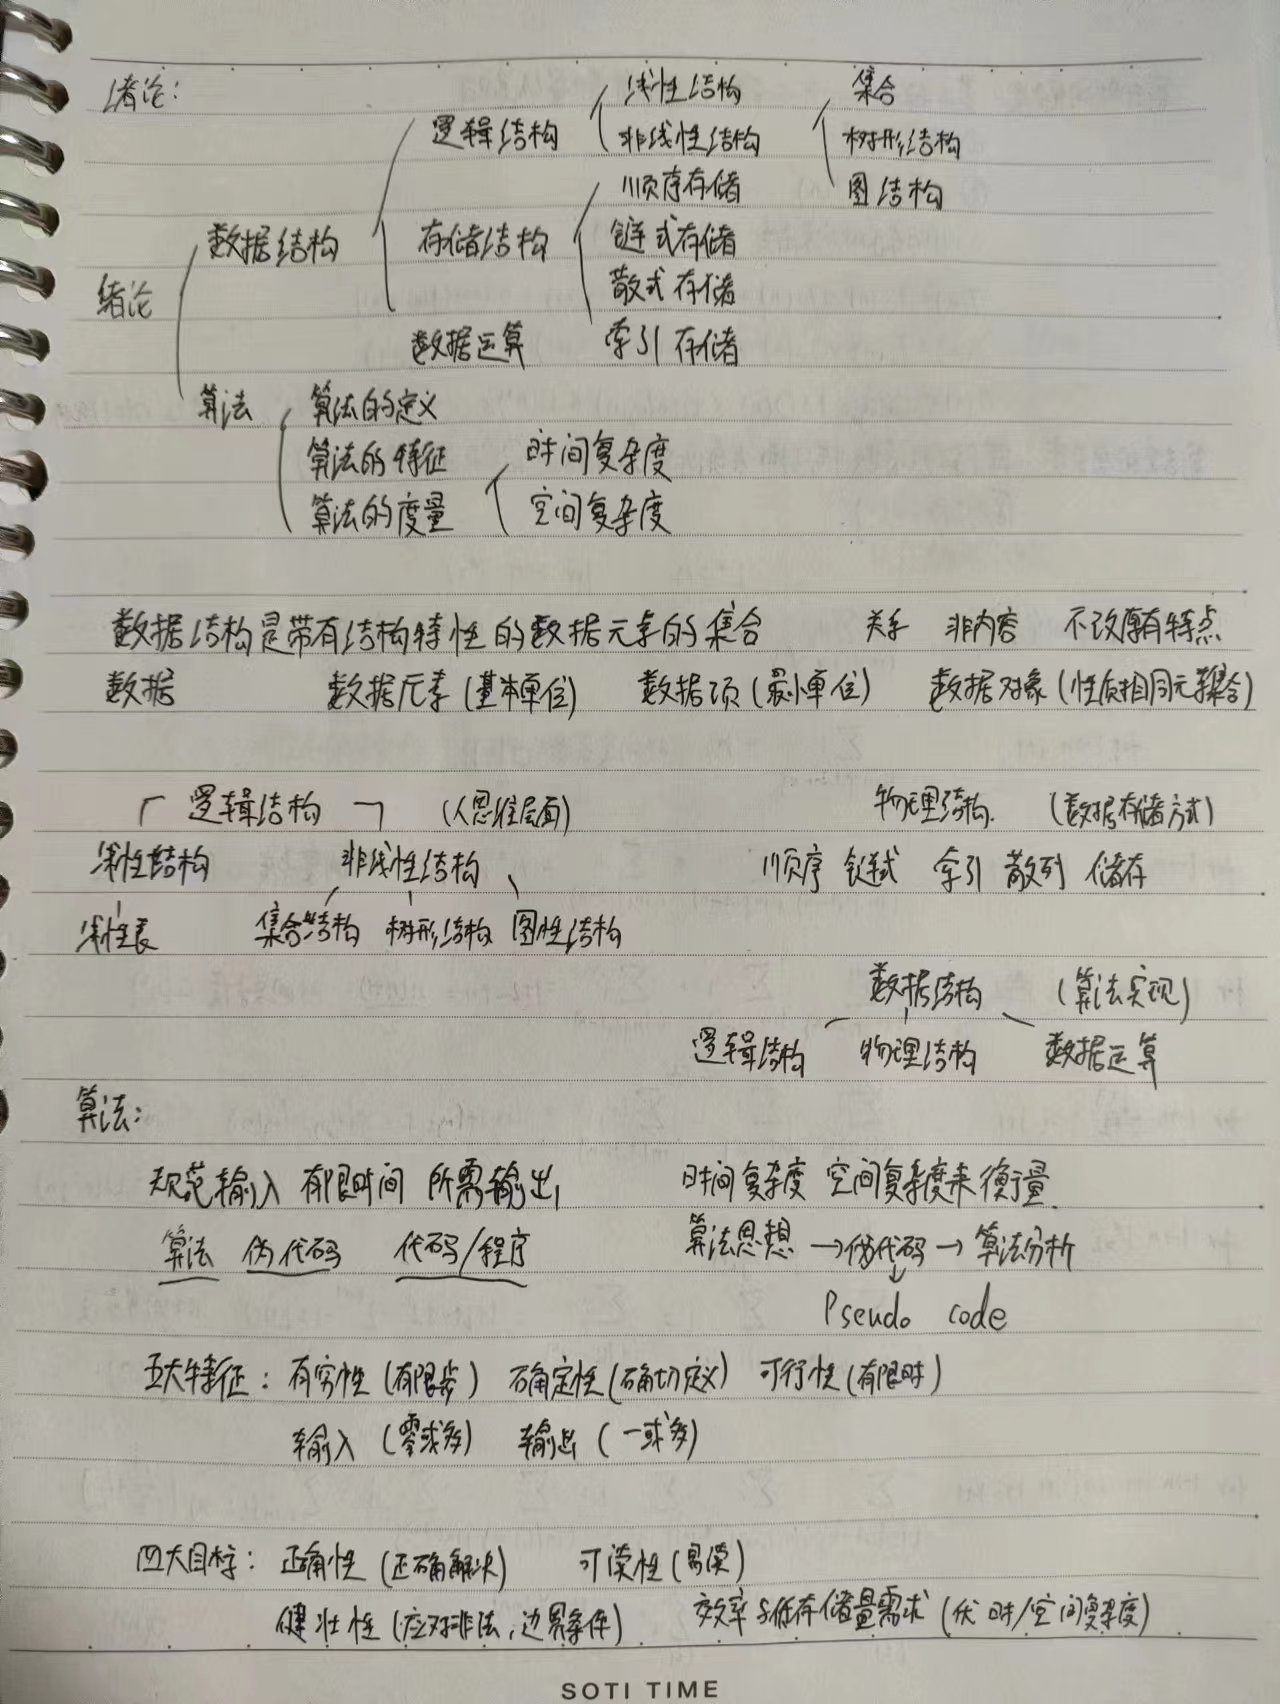 绪论：
线性结构 集合
逻辑结构 非线性结构 树形结构
顺序存储 图结构
数据结构 存储结构 链式存储
绪论 散式存储
数据运算 索引存储
算法 算法的定义
算法的特征 时间复杂度
算法的度量 空间复杂度
数据结构是带有结构特性的数据元素的集合 关系 非内容 不改原有特点
数据 数据元素(基本单位) 数据项(最小单位) 数据对象(性质相同元素集合)
逻辑结构 (人思维层面) 物理结构. (数据存储方式)
线性结构 非线性结构 顺序 链式 索引 散列 储存
线性表 集合结构 树形结构 图性结构
数据结构 (算法实现)
逻辑结构 物理结构 数据运算
算法：
规范输入 有限时间 所需输出, 时间复杂度 空间复杂度来衡量.
算法 伪代码 代码/程序 算法思想→伪代码→算法分析
Pseudo code
五大特征：有穷性(有限步) 确定性(确切定义) 可行性(有限时)
输入(零或多) 输出(一或多)
四大目标：正确性(正确解决) 可读性(易读)
健壮性(应对非法,边界条件) 效率与低存储量需求(优时/空间复杂度)
SOTI TIME